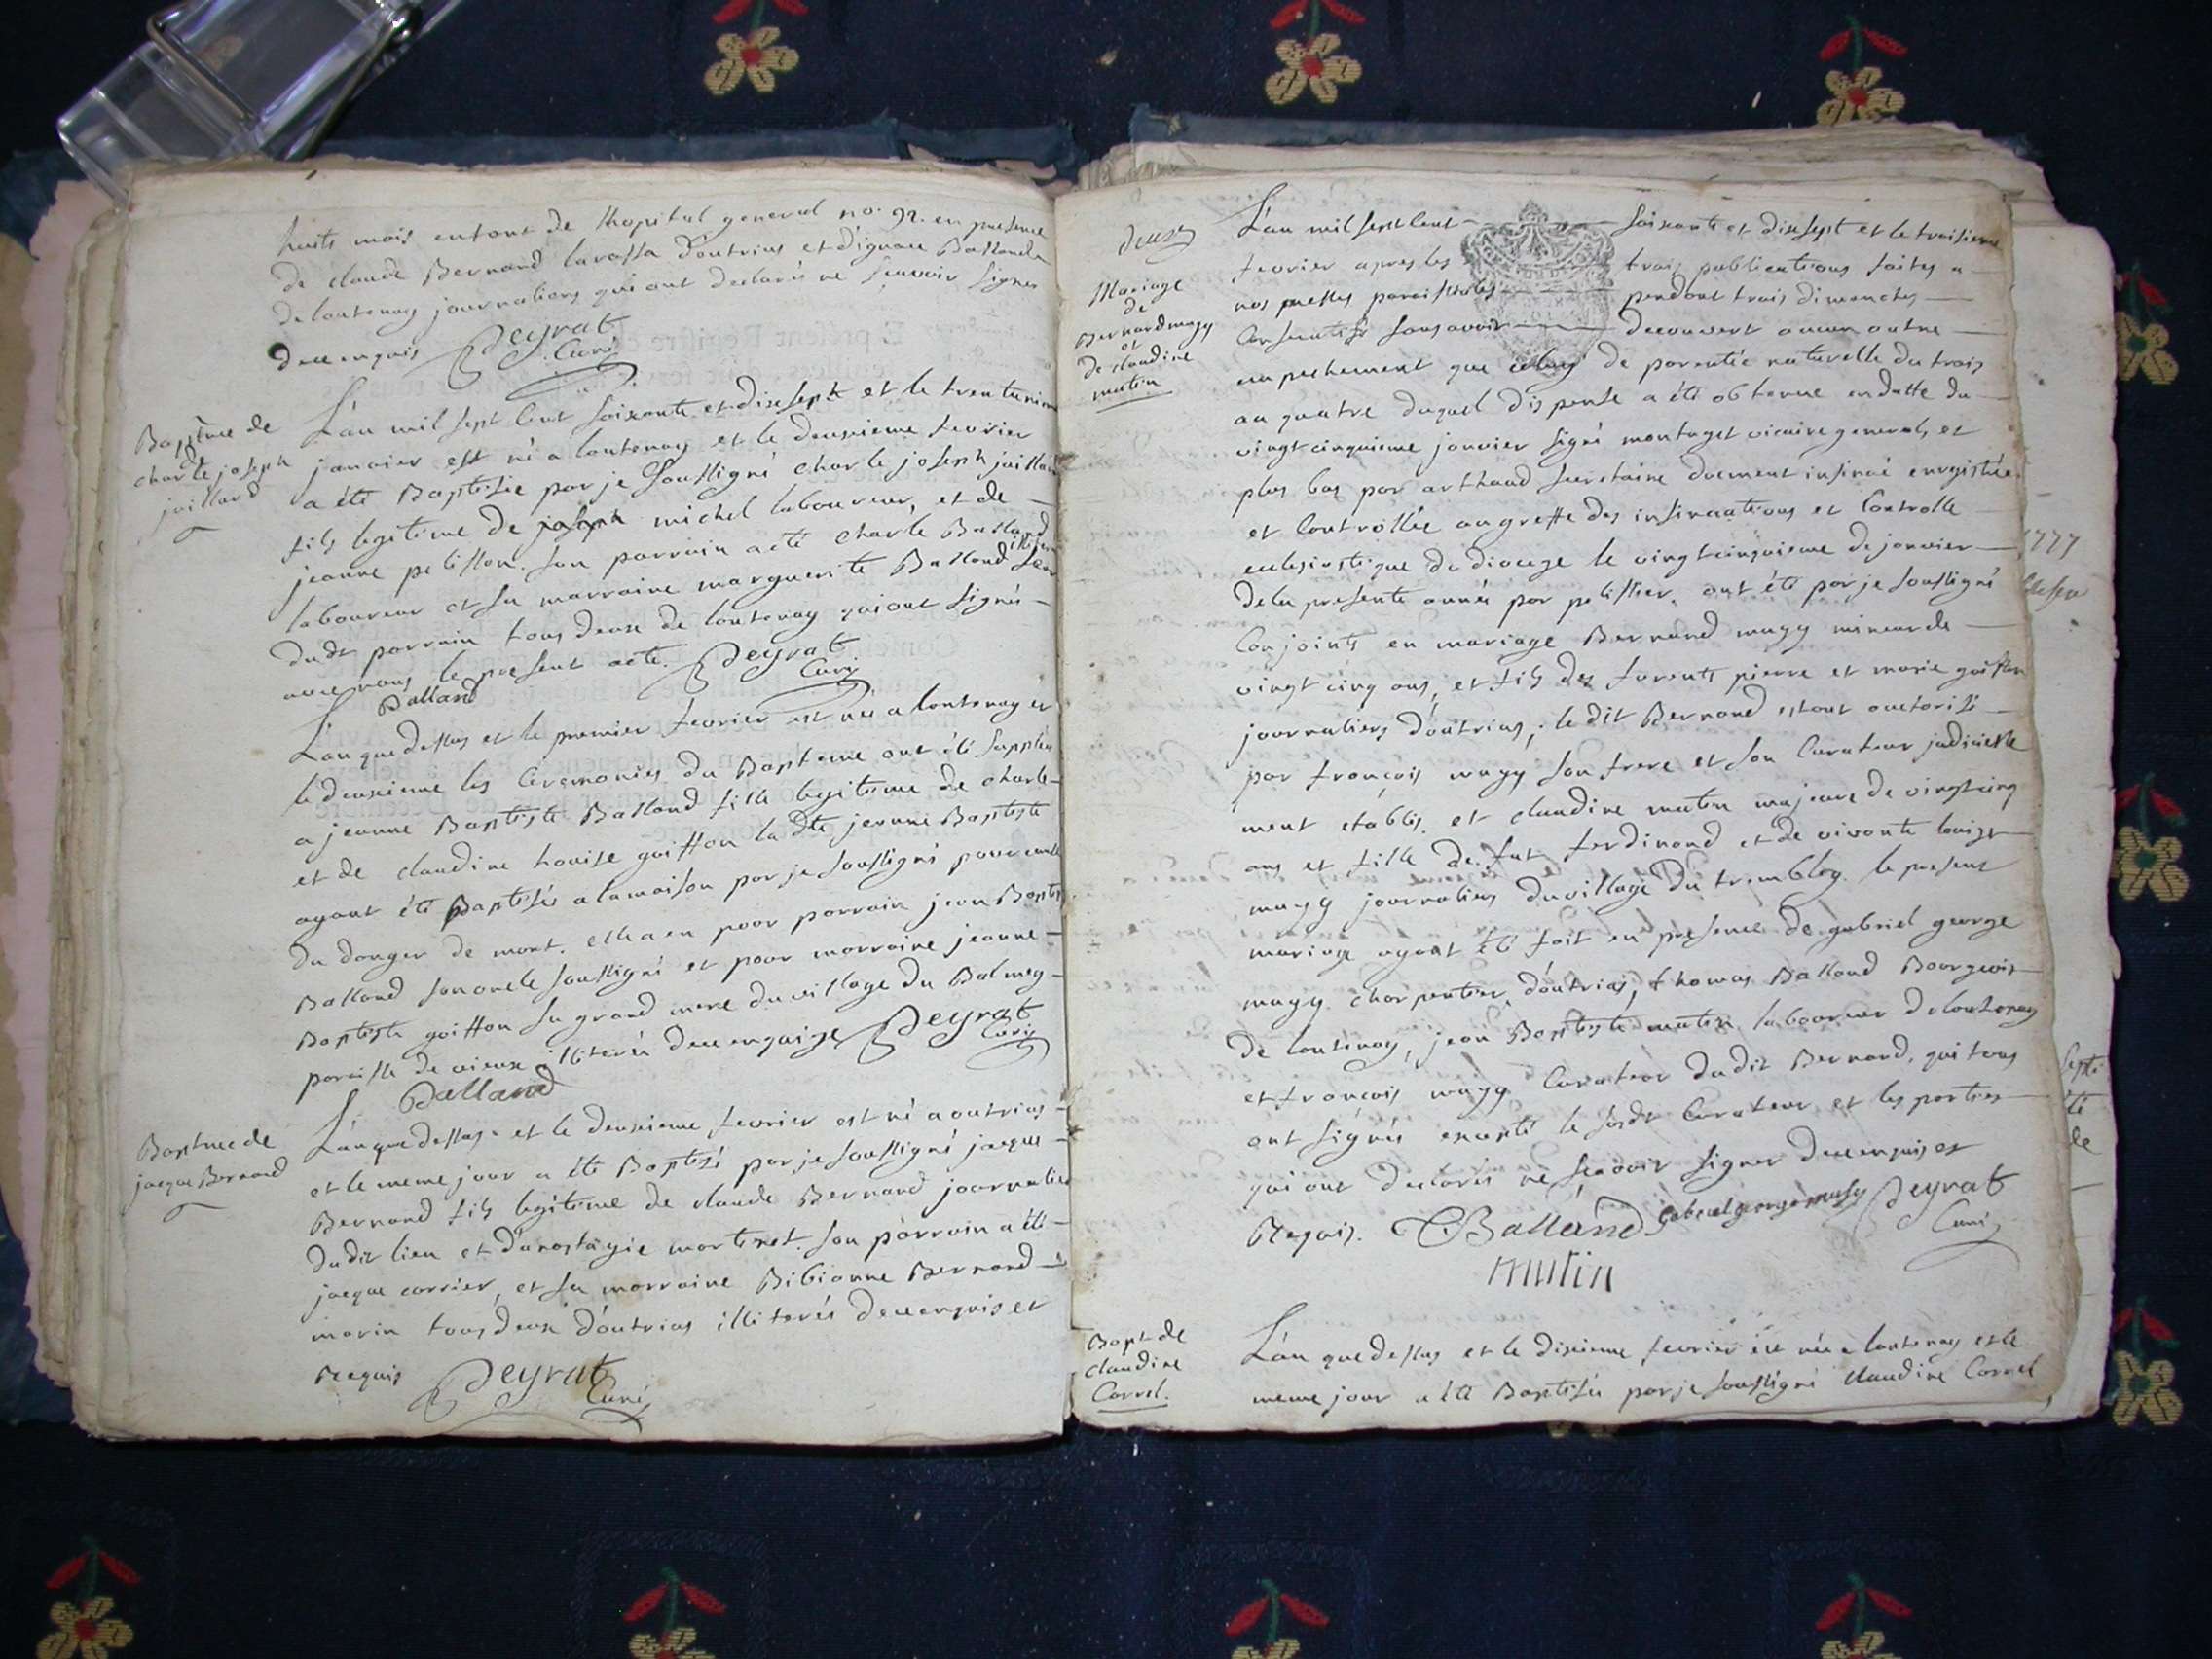 huits mois enfant de Lhopital general no. 92. en presence
de claude Bernard lavossa d'outrias et d'ignace Balland
de lantenay journaliers qui ont declarés ne sçavoir signer
de ce enquis Peyrat
Curé
Baptême de
charle joseph
juillard
L'an mil sept cent soixante et dix sept et le trentunieme
janvier est né a lantenay et le deuxieme fevrier
a été Baptisée par je soussigné charle joseph juillard
fils legitime de joseph michel laboureur, et de
jeanne pelisson. son parrain a été charle Balland
laboureur et sa marraine marguerite Balland
dudt parrain tous deux de lantenay qui ont signés
avec nous le present acte. Peyrat
Curé
Balland
L'an que dessus et le premier fevrier est née a lantenay et
le deuxieme les ceremonies du Bapteme ont été supplées
a jeanne Baptiste Balland fille legitime de charle
et de claudine louise goiffon la dte jeanne Baptiste
ayant été Baptisée a la maison par je soussigné pour cause
du danger de mort. elle a eu pour parrain jean Baptiste
Balland son oncle soussigné et pour marraine jeanne
Baptiste goiffon sa grand mere du village du Balmey
paroisse de vieux illiterée de ce enquise Peyrat
Curé
Balland
Baptme de
jacque Bernard
L'an que dessus et le deuxieme fevrier est né a outrias
et le meme jour a été Baptisé par je soussigné jacque
Bernard fils legitime de claude Bernard journalier
dudit lieu et d'anastasie martinet. son parrain a été
jacque carrier, et sa marraine Bibianne Bernard
marin tous deux d'outrias illiterés de ce enquis et
Requis Peyrat
Curé
deux
Mariage
de
Bernard magy
et
de claudine
mutin
L'an mil sept cent soixante et dix sept et le troisieme
fevrier apres les trois publications faites a
nos messes paroissiales pendant trois dimanches
consecutifs sans avoir decouvert aucun autre
empechement que celuy de parentée naturelle du trois
au quatre duquel dispense a été obtenue en datte du
vingt cinquieme janvier signé montaget vicaire general, et
plus bas par arthaud secretaire duement insinué enregistrée
et controllée au greffe des insinuations et controlle
eclesiastique du dioceze le vingt cinquieme de janvier
de la presente année par pelissier, ont été par je soussigné
conjoints en mariage Bernard magy mineur de
vingt cinq ans, et fils des furents pierre et marie goiffon
journaliers d'outrias, ledit Bernard estant auctorisé
par françois magy son frere et son curateur judicielle
ment etablis. et claudine mutin majeure de vingt cinq
ans et fille de fut ferdinand et de vivante louise
magy journaliers du village du trembley. le present
mariage ayant été fait en presence de gabriel george
magy charpentier, d'outrias, thomas Balland Bourgeois
de lantenay, jean Baptiste mutin laboureur de lantenay
et françois magy curateur dudit Bernard, qui tous
ont signés excepté le susdt curateur et les parties
qui ont declarés ne sçavoir signer de ce enquis et
Requis. Balland gabriel george musy Peyrat
Curé
mutin
Bapt de
claudine
Carrel.
L'an que dessus et le dixieme fevrier est née a lantenay et le
meme jour a été Baptisée par je soussigné claudine Carrel
1777